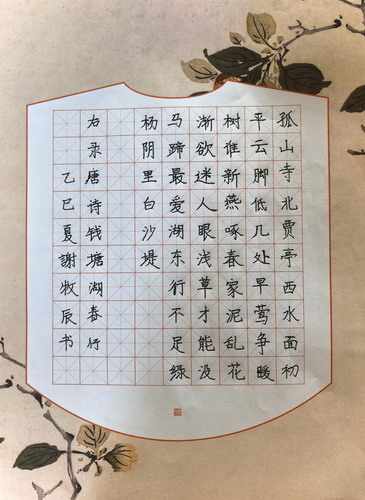 孤山寺北贾亭西水面初
平云脚低几处早莺争暖
树谁新燕啄春家泥乱花
渐欲迷人眼浅草才能没
马蹄最爱湖东行不足绿
杨阴里白沙堤
右录唐诗钱塘湖春行
乙巳夏謝牧辰书